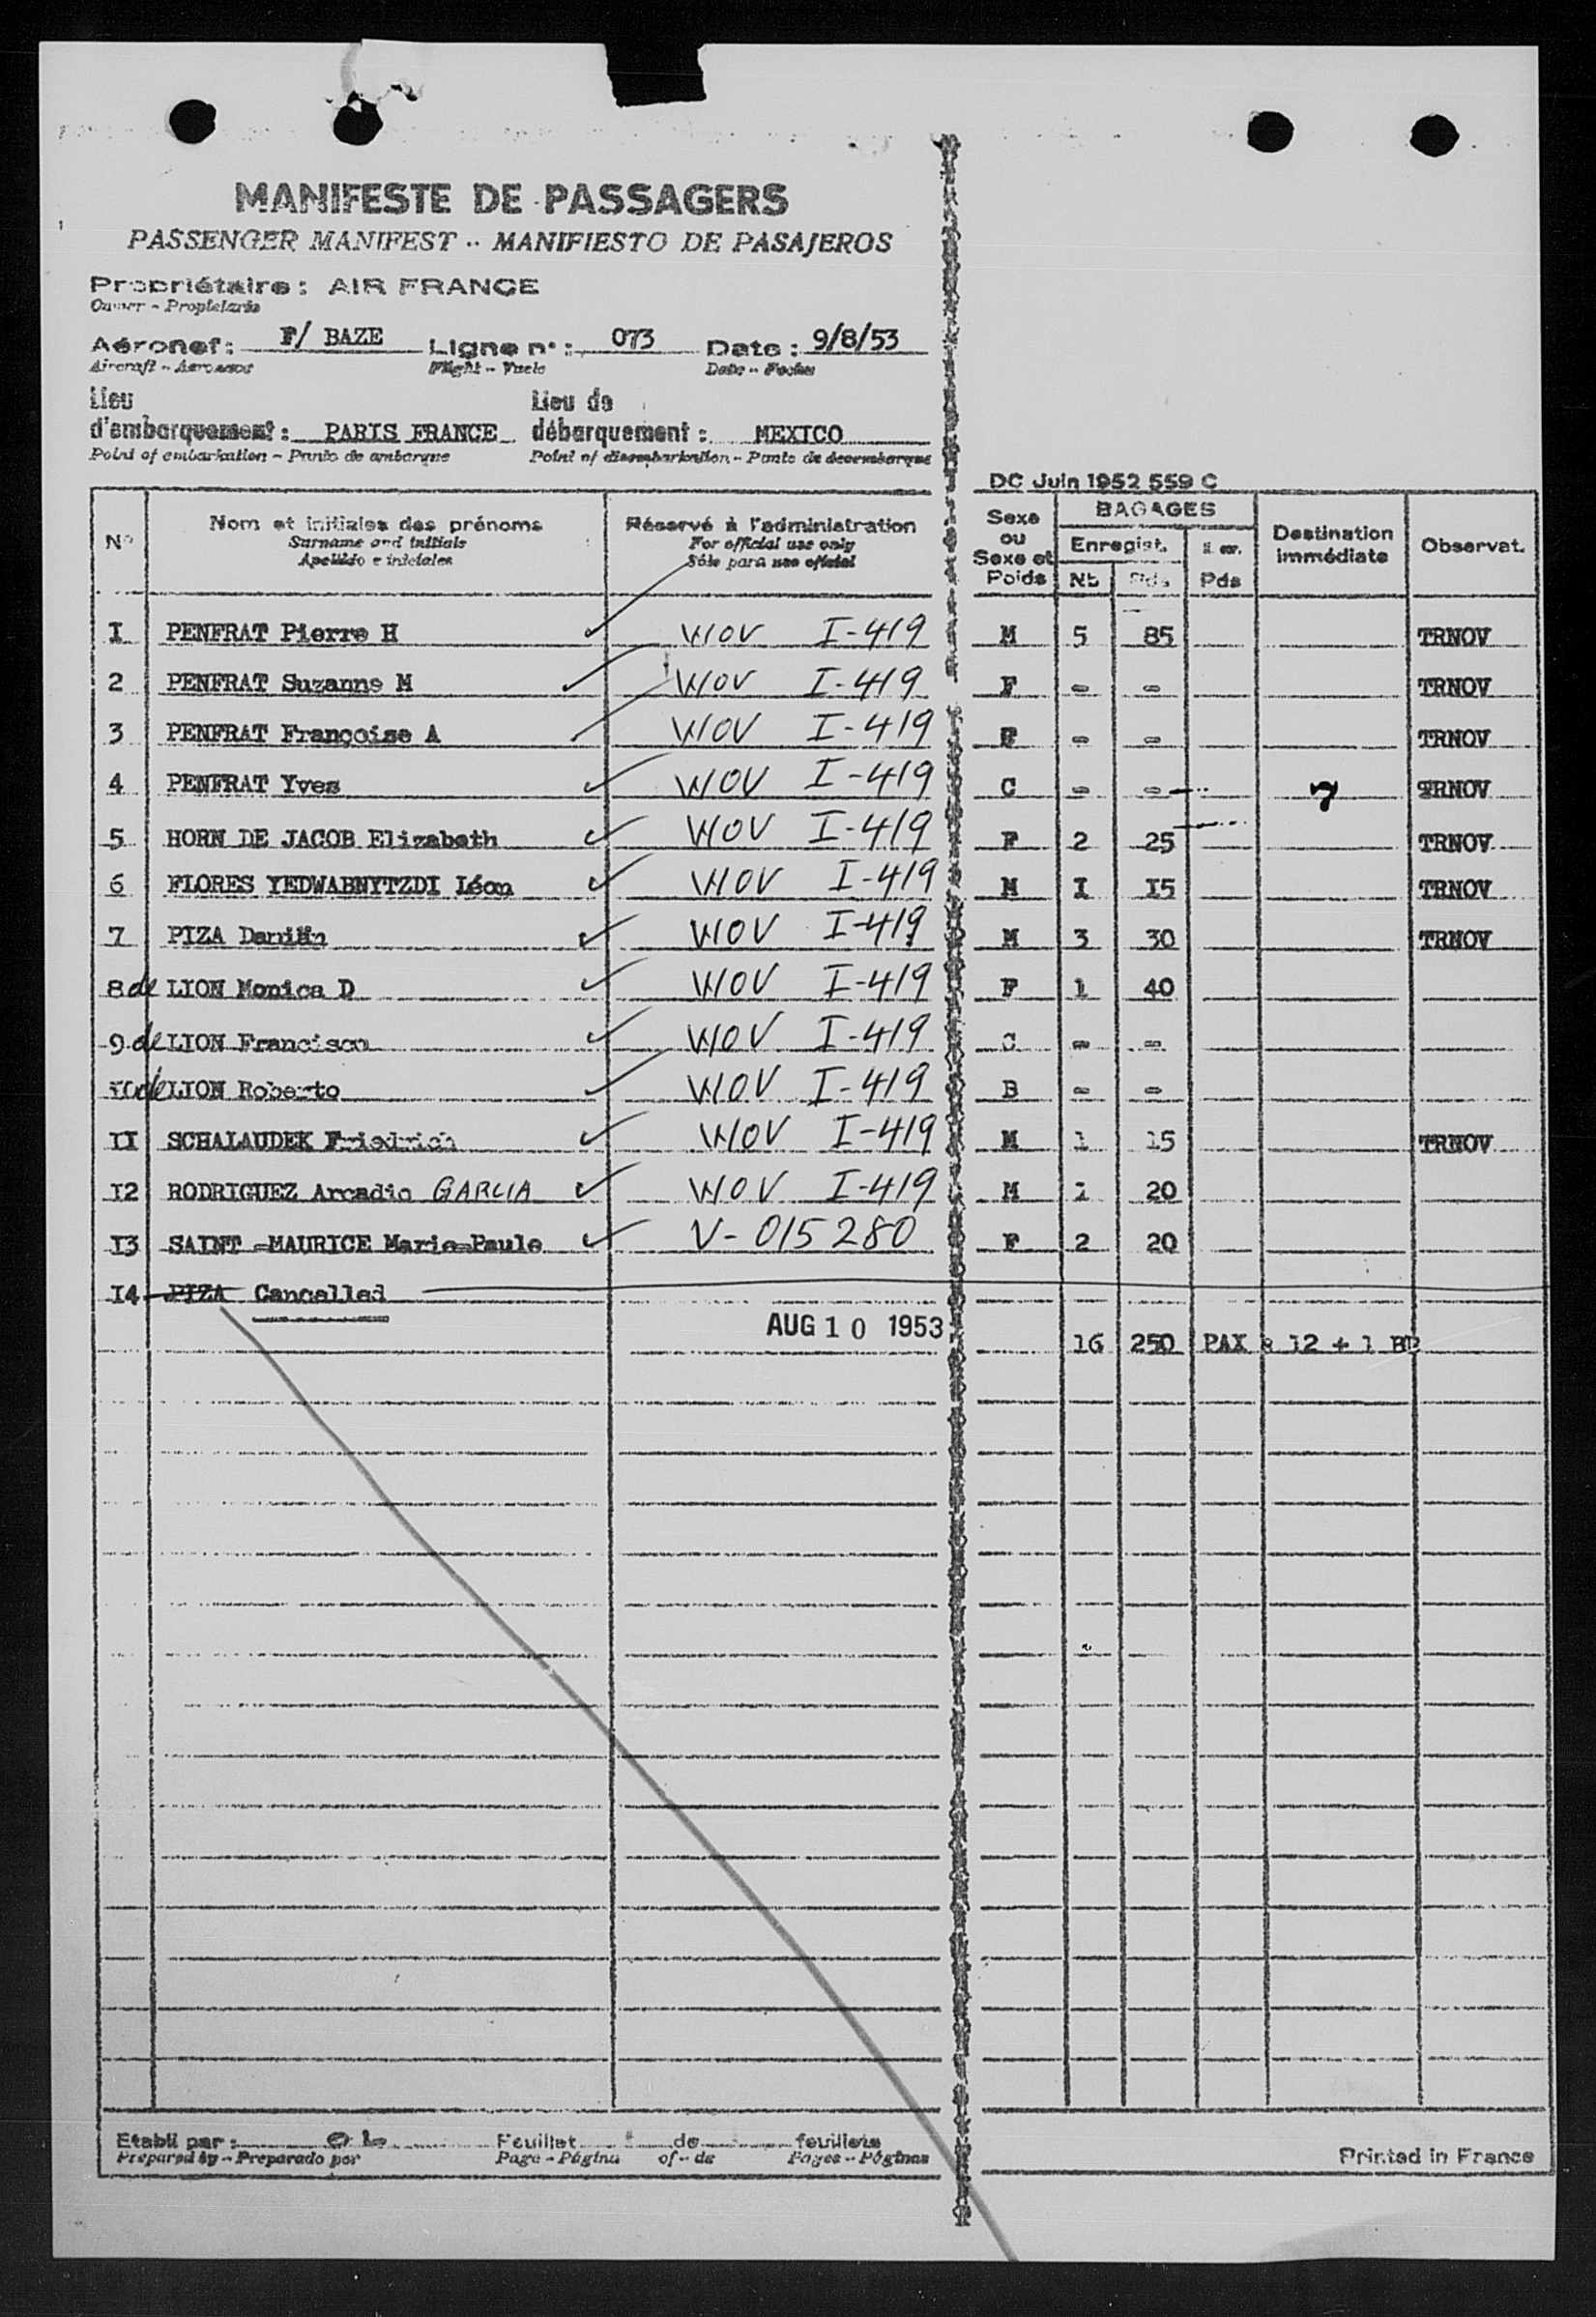 MANIFESTE DE PASSAGERS
PASSENGER MANIFEST - MANIFIESTO DE PASAJEROS
Propriétaire : AIR FRANCE
Owner - Propietario
Aéronef : F/ BAZE Ligne n° : 073 Date : 9/8/53
Aircraft - Aeronave Flight - Vuelo Date - Fecha
Lieu d'embarquement : PARIS FRANCE Lieu de débarquement : MEXICO
Point of embarkation - Punto de embarque Point of disembarkation - Punto de desembarque
DC Juin 1952 559 C
N° Nom et initiales des prénoms Réservé à l'administration Sexe ou Sexe et Poids BAGAGES Enregist. Nb Pds Pds Destination immédiate Observat.
Surname and initials For official use only
Apellido e iniciales Sólo para uso oficial
I PENFRAT Pierre H WOV I-419 M 5 85 TRNOV
2 PENFRAT Suzanne M WOV I-419 F - - TRNOV
3 PENFRAT Françoise A WOV I-419 F - - TRNOV
4 PENFRAT Yves WOV I-419 C - - 7 TRNOV
5 HORN DE JACOB Elizabeth WOV I-419 F 2 25 TRNOV
6 FLORES YEDWABNYTZDI Léon WOV I-419 M I I5 TRNOV
7 PIZA Damián WOV I-419 M 3 30 TRNOV
8 de LION Monica D WOV I-419 F 1 40
9 de LION Francisco WOV I-419 C - -
de LION Roberto WOV I-419 B - -
II SCHALAUDEK Friedrich WOV I-419 M 1 15 TRNOV
I2 RODRIGUEZ Arcadio GARCIA WOV I-419 M 20
I3 SAINT-MAURICE Marie-Paule V-015280 F 2 20
I4 PIZA Cancelled
AUG 10 1953
16 250 PAX 12 + 1 BB
Etabli par : Feuillet de feuillets
Prepared by - Preparado por Page - Página of - de Pages - Páginas
Printed in France